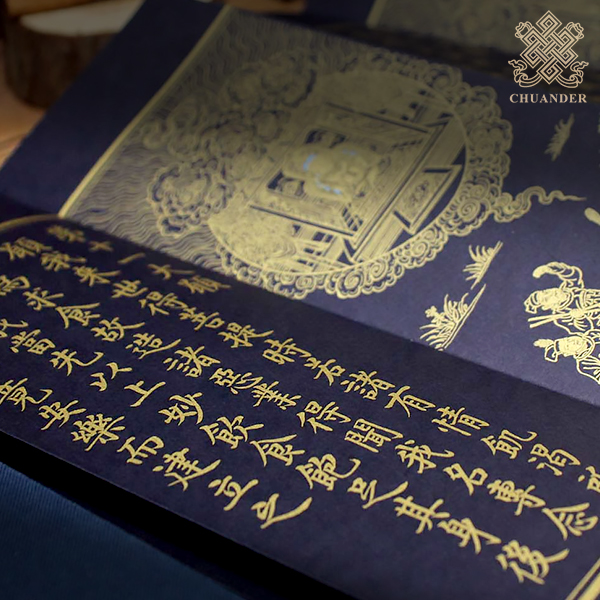 CHUANDER
第十一大願
願我來世得菩提時若諸有情飢渴
為求食故造諸惡業得聞我名專念
我當先以上妙飲食飽足其身後
竟安樂而建立之